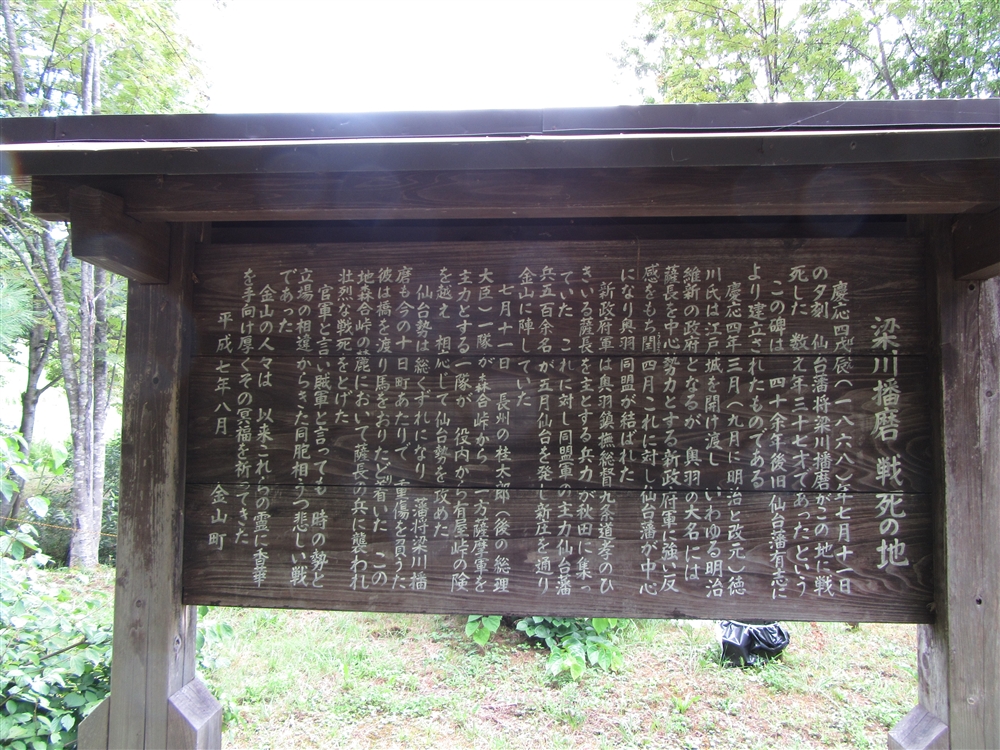 梁川播磨 戦死の地
慶応四戊辰(一八六八)年七月十一日
の夕刻 仙台藩将梁川播磨がこの地に戦
死した 数え年三十七才であったという
この碑は 四十余年後旧仙台藩有志に
より建立されたものである
慶応四年三月(九月に明治と改元)徳
川氏は江戸城を開け渡し いわゆる明治
維新の政府となるが 奥羽の大名には
薩長を中心勢力とする新政府軍に強い反
感をもち閏四月これに対し仙台藩が中心
になり奥羽同盟が結ばれた
新政府軍は奥羽鎮撫総督九条道孝のひ
きいる薩長を主とする兵力が秋田に集っ
ていた これに対し同盟軍の主力仙台藩
兵五百余名が五月仙台を発し新庄を通り
金山に陣していた
七月十一日 長州の桂太郎(後の総理
大臣)一隊が 森合峠から 一方薩摩軍を
主力とする一隊が 役内から有屋峠の険
を越え 相応して仙台勢を攻めた
仙台勢は総くずれになり 藩将梁川播
磨も今の十日町あたりで 重傷を負うた
彼は橋を渡り馬をおりたどり着いた この
地森合峠の麓において薩長の兵に襲われ
壮烈な戦死をとげた
官軍と言い賊軍と言っても 時の勢と
立場の相違からきた同胞相うつ悲しい戦
であった
金山の人々は 以来これらの霊に香華
を手向け厚くその冥福を祈ってきた
平成七年八月 金山町